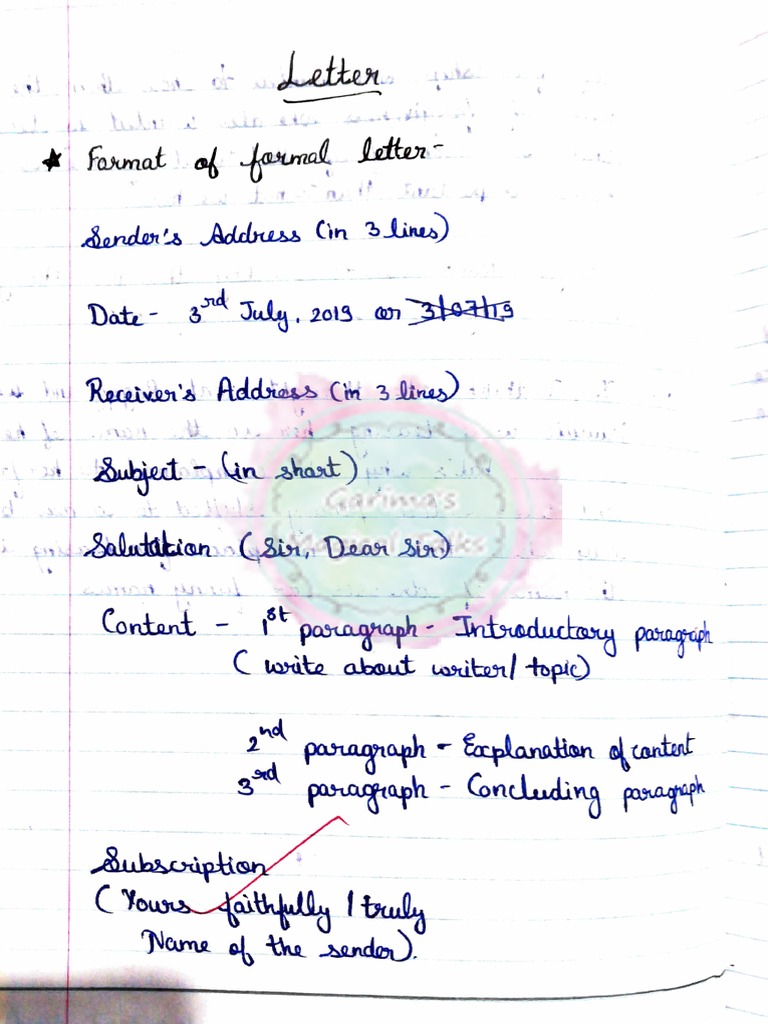 Letter
★ Format of formal letter-
Sender's Address (in 3 lines)
Date - 3rd July, 2019 or 3/07/19
Receiver's Address (in 3 lines)
Subject - (in short)
Garima's
Salutation (Sir, Dear Sir)
Content - 1st paragraph - Introductory paragraph
( write about writer/ topic)
2nd paragraph - Explanation of content
3rd paragraph - Concluding paragraph
Subscription
( Yours faithfully / truly
Name of the sender).